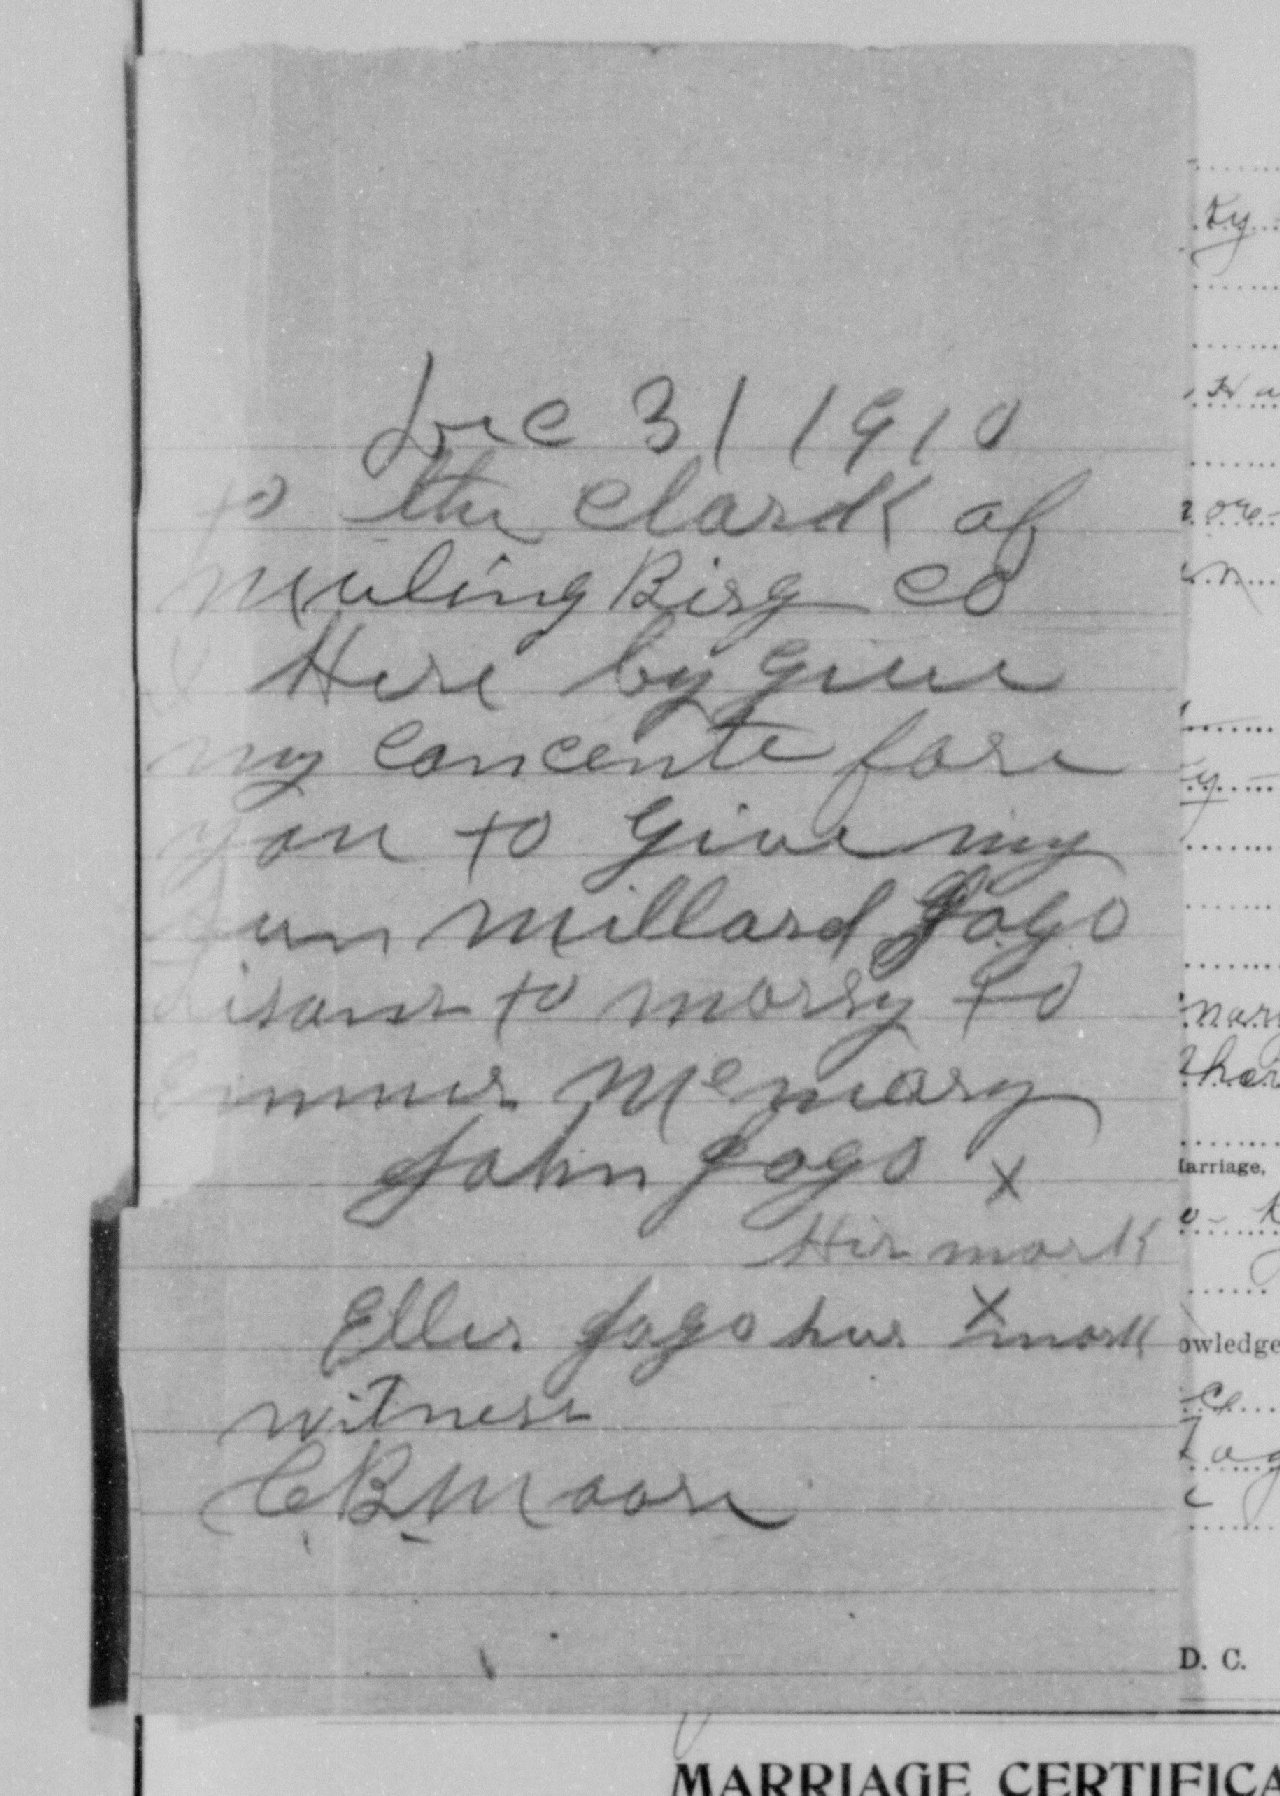 Dec 31 1910
to the Clark of
muling Birg co
I Here by give
my concente fore
you to Give my
sun millard Jogo
lisans to marry to
Emmer Memary
John Jogo x
His mark
Eller Jogo hur x mark
witness
C. B. Moore
Ky
mary
arriage,
owledge
D. C.
MARRIAGE CERTIFICA